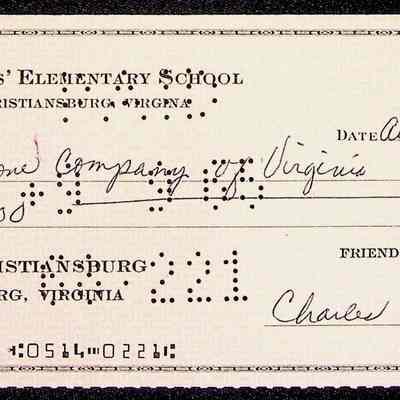 s' ELEMENTARY SCHOOL
RISTIANSBURG, VIRGINA
DATE
one Company of Virginia
00
ISTIANSBURG
RG, VIRGINIA
221
FRIEND
Charles
⑆0514⑉0221⑆